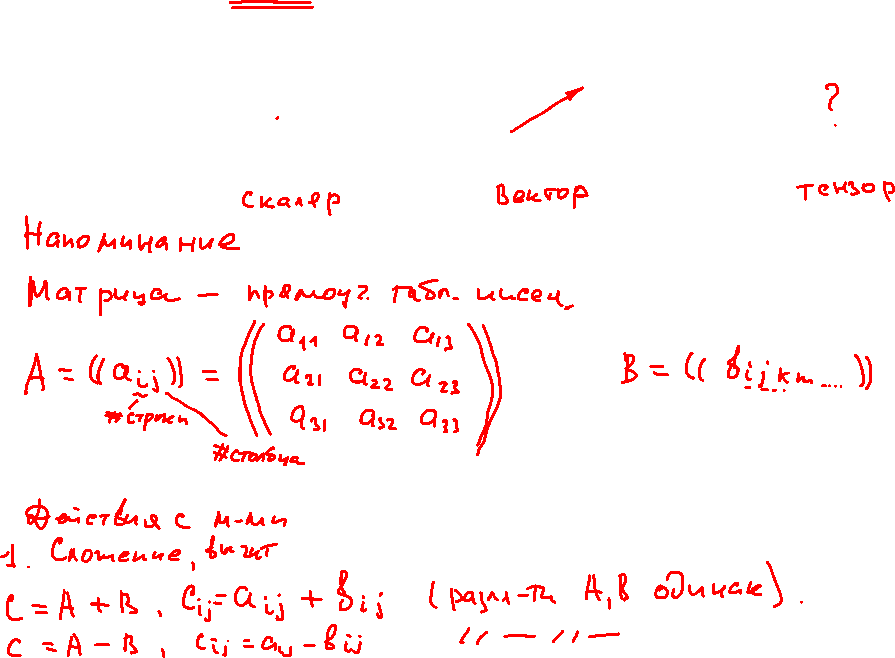 ?
скаляр вектор тензор
Напоминание
Матрица — прямоуг. табл. чисел.
A = ((a_{ij})) = ((a_{11} a_{12} a_{13} B = ((b_{ijkm....}))
a_{21} a_{22} a_{23}
a_{31} a_{32} a_{33}))
#строки
#столбца
Действия с м-ми
1. Сложение, вычит
C = A + B, c_{ij} = a_{ij} + b_{ij} (разм-ти A, B одинак).
C = A − B, c_{ij} = a_{ij} − b_{ij} // — // —